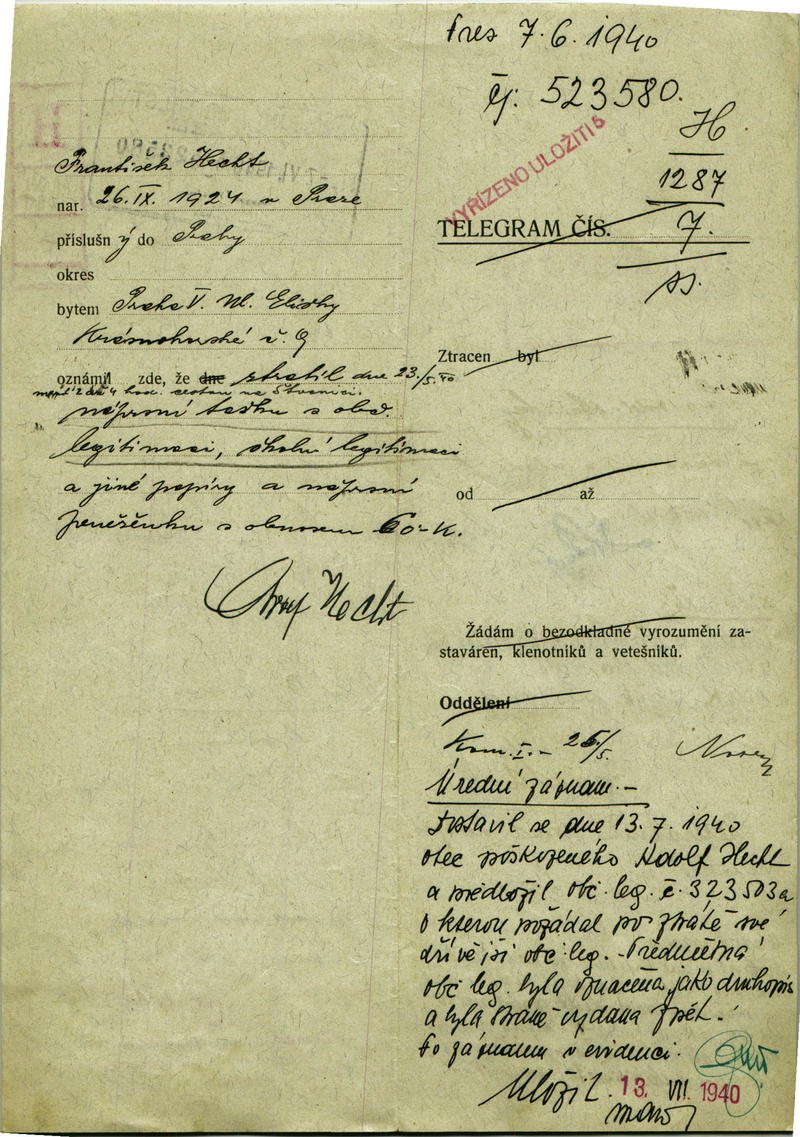 František Hecht
nar. 26. IX. 1924 v Praze
příslušný do Prahy
okres
bytem Praha V. Ul. Elišky
Krásnohorské č. 9
oznámil zde, že dne ztratil dne 23./5. 40
mezi 2 až 4 hod. cestou na Štvanici.
náprsní tašku s obč.
legitimaci, školní legitimaci
a jiné papíry a náprsní
peněženku s obnosem 60-K.
Hecht
Pres 7.6.1940
čj: 523580.
H
1287
7.
VYŘÍZENO ULOŽITI
TELEGRAM ČÍS.
Ztracen byl
od až
Žádám o bezodkladné vyrozumění za-
staváren, klenotníků a vetešníků.
Oddělení
Kom. I. - 25/5.
Úřední záznam.-
Dostavil se dne 13.7.1940
otec poškozeného Adolf Hecht
a předložil obč. leg. č. 323503a
o kterou požádal po ztrátě své
dřívější obč. leg. - Předmětná
obč leg. byla označena jako druhopis
a byla straně vydána zpět.
Po záznamu v evidenci.
Uložit. 13. VII. 1940